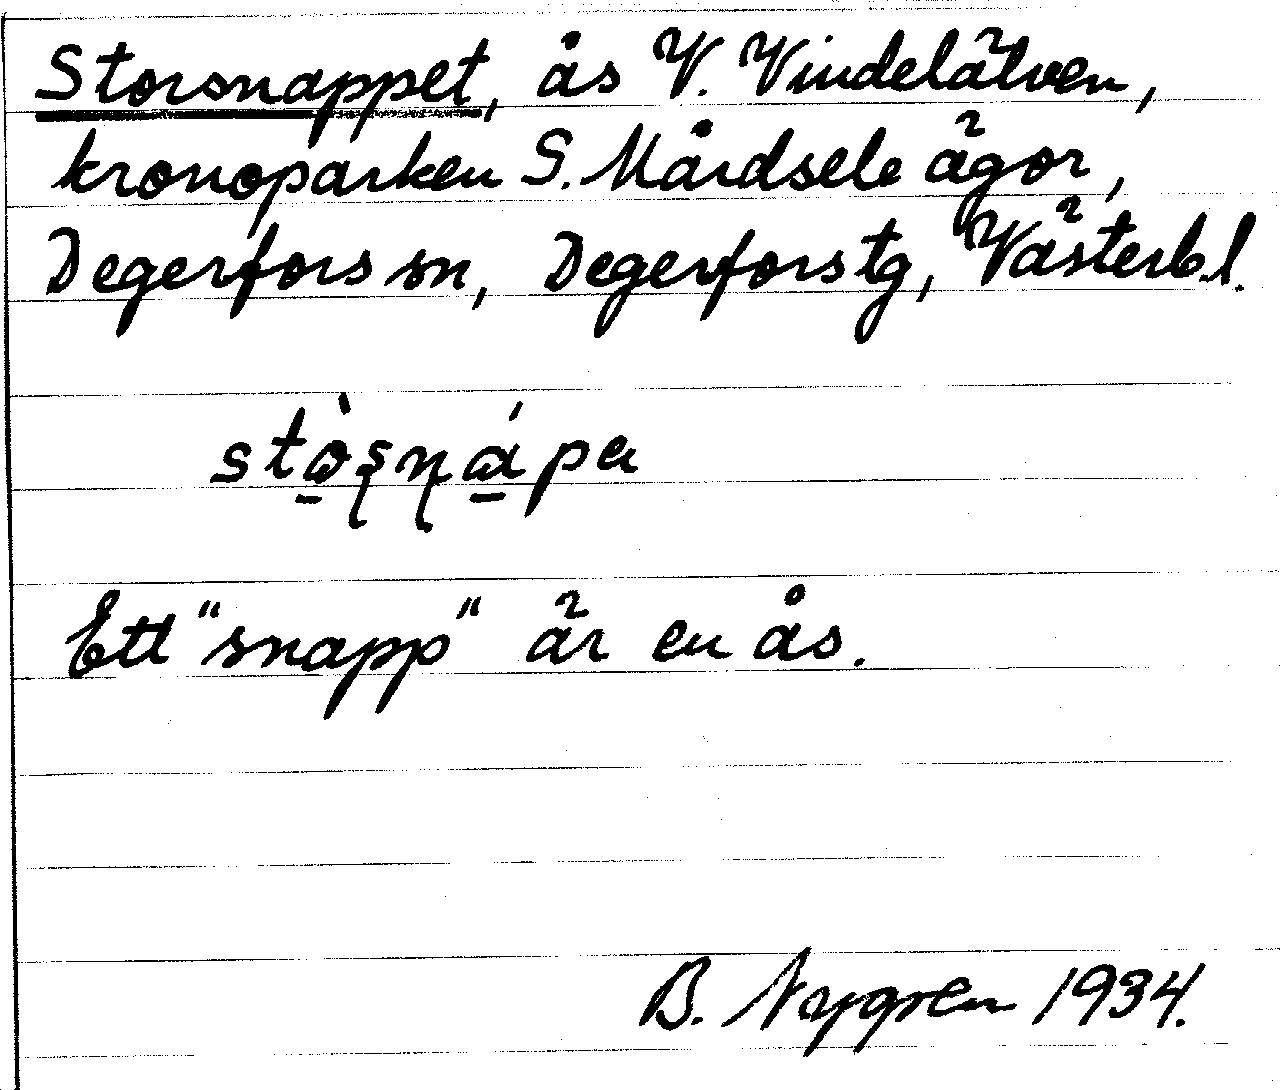 Storsnappet, ås V. Vindelälven,
kronoparken S. Mårdsele ägor,
Degerfors sn, Degerfors tg, Västerb.l.
Ett "snapp" är en ås.
B. Nygren 1934.